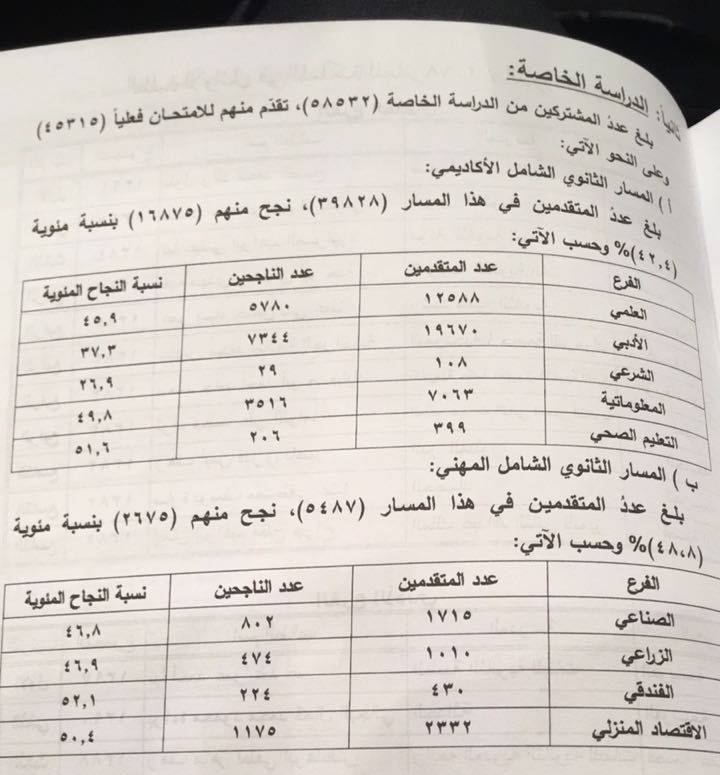 ثانياً: الدراسة الخاصة:
بلغ عددُ المشتركين من الدراسة الخاصة (٥٨٥٣٢)، تقدّم منهم للامتحان فعلياً (٤٥٣١٥)
وعلى النحو الآتي:
أ ) المسار الثانوي الشامل الأكاديمي:
بلغ عددُ المتقدمين في هذا المسار (٣٩٨٢٨)، نجح منهم (١٦٨٧٥) بنسبة مئوية
(٤٢,٤)% وحسب الآتي:
الفرع عدد المتقدمين عدد الناجحين نسبة النجاح المئوية
العلمي ١٢٥٨٨ ٥٧٨٠ ٤٥,٩
الأدبي ١٩٦٧٠ ٧٣٤٤ ٣٧,٣
الشرعي ١٠٨ ٢٩ ٢٦,٩
المعلوماتية ٧٠٦٣ ٣٥١٦ ٤٩,٨
التعليم الصحي ٣٩٩ ٢٠٦ ٥١,٦
ب ) المسار الثانوي الشامل المهني:
بلغ عددُ المتقدمين في هذا المسار (٥٤٨٧)، نجح منهم (٢٦٧٥) بنسبة مئوية
(٤٨,٨)% وحسب الآتي:
الفرع عدد المتقدمين عدد الناجحين نسبة النجاح المئوية
الصناعي ١٧١٥ ٨٠٢ ٤٦,٨
الزراعي ١٠١٠ ٤٧٤ ٤٦,٩
الفندقي ٤٣٠ ٢٢٤ ٥٢,١
الاقتصاد المنزلي ٢٣٣٢ ١١٧٥ ٥٠,٤